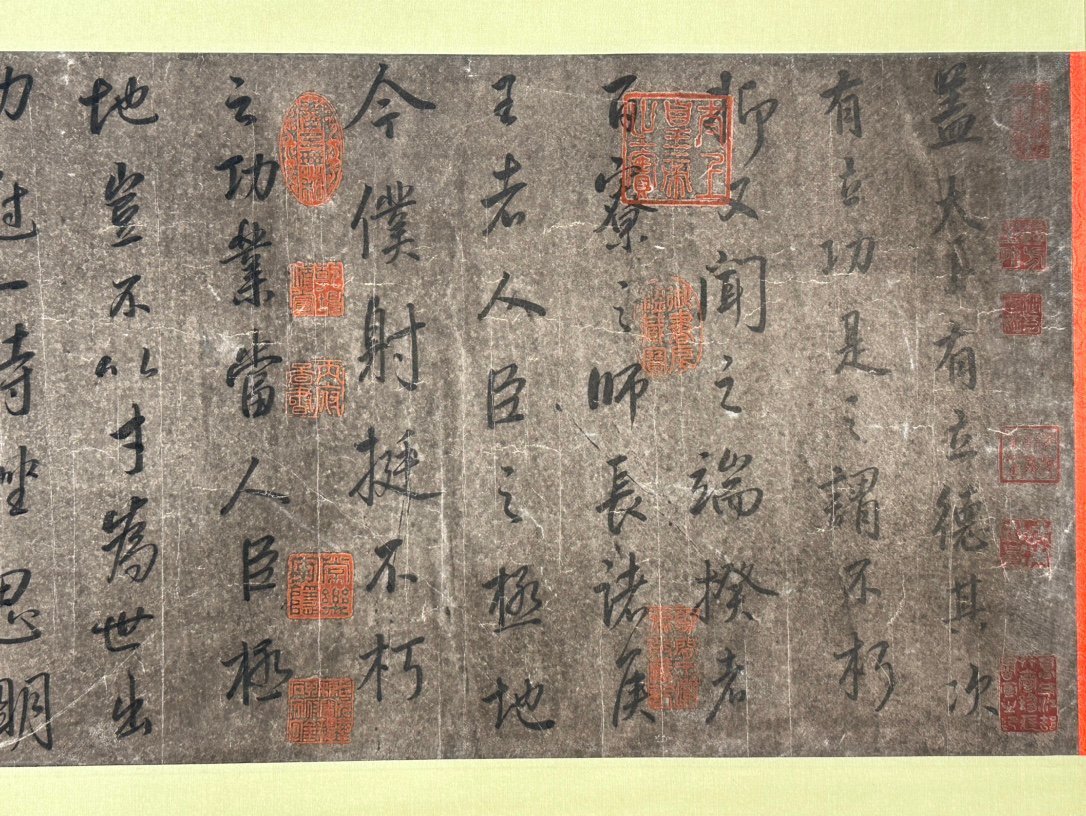 盖太上有立德其次
有立功是之謂不朽
抑又聞之端揆者
百寮之師長諸侯
王者人臣之極地
今僕射挺不朽
之功業當人臣極
地豈不以才為世出
功冠一時挫思明